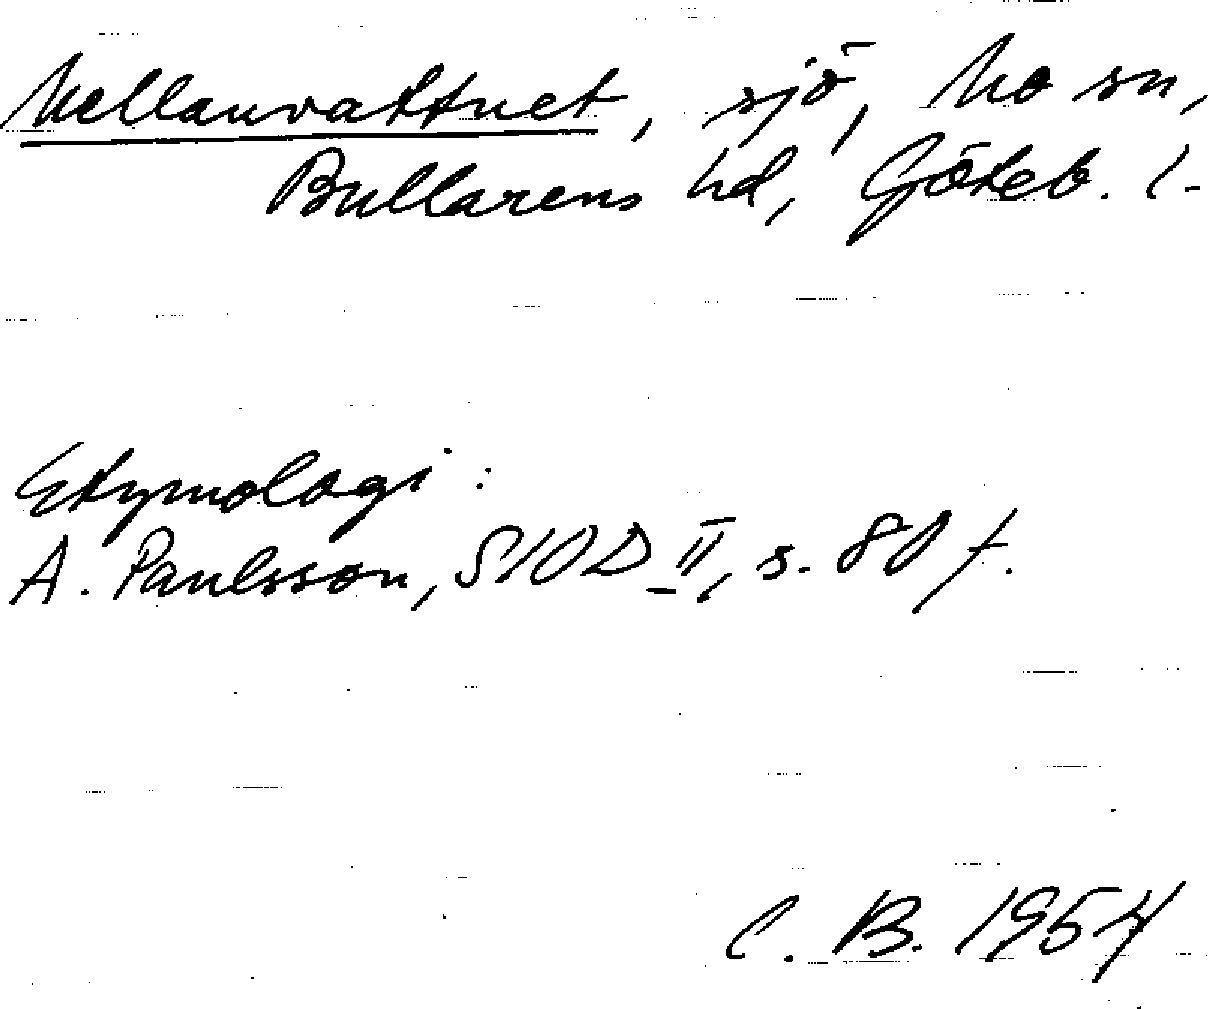 Mellanvattnet, sjö, Mo sn,
Bullarens hd, Göteb. l.
Etymologi:
A. Paulsson, SIOD II, s. 80 f.
C. B. 1954